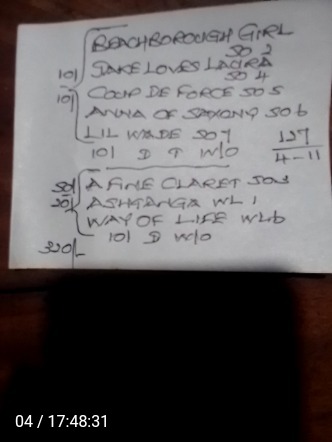 BEACHBOROUGH GIRL
SO 2
10/ JAKE LOVES LAURA
SO 4
10/ COUP DE FORCE SO 5
ANNA OF SAXONY SO 6
LIL WADE SO 7
10/ D T W/O
127
4-11
50/ A FINE CLARET SO3
20/ ASHTANGA WL 1
WAY OF LIFE WL6
10/ D W/O
320/
04 / 17:48:31